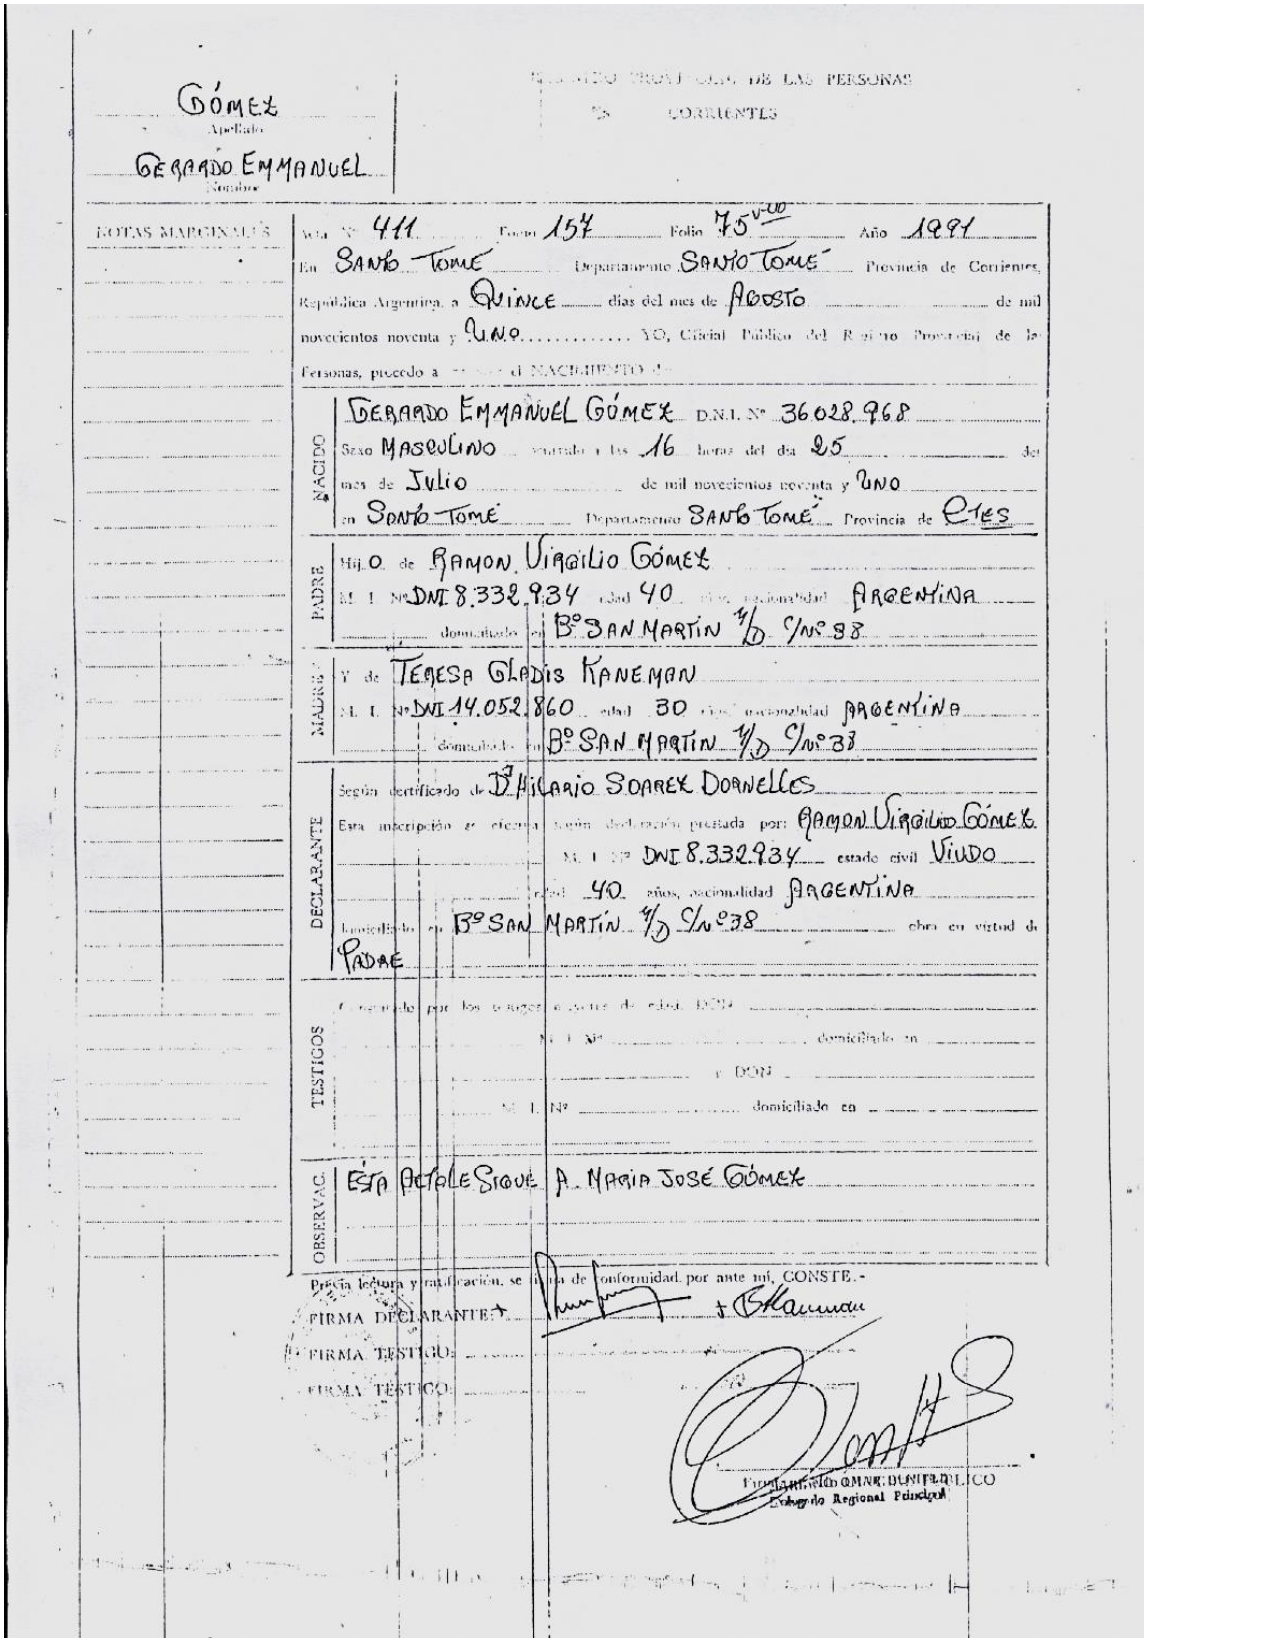 GÓMEZ
Apellido
GERARDO EMMANUEL
Nombre
DE LAS PERSONAS
CORRIENTES
NOTAS MARGINALES
Acta Nº 411 Tomo 157 Folio 75 vto Año 1991
En SANTO TOMÉ Departamento SANTO TOMÉ Provincia de Corrientes,
República Argentina, a QUINCE días del mes de AGOSTO de mil
novecientos noventa y UNO YO, Oficial Público del Registro Provincial de las
Personas, procedo a el NACIMIENTO de
NACIDO
GERARDO EMMANUEL GÓMEZ D.N.I. Nº 36028.968
Sexo MASCULINO ocurrido a las 16 horas del día 25 del
mes de JULIO de mil novecientos noventa y UNO
en SANTO TOMÉ Departamento SANTO TOMÉ Provincia de CTES
PADRE
Hij O de RAMON VIRGILIO GÓMEZ
M. I. Nº DNI 8.332.934 edad 40 años, nacionalidad ARGENTINA
domiciliado en Bº SAN MARTIN C/Nº 38
MADRE
Y de TERESA GLADIS KANEMAN
M. I. Nº DNI 14.052.860 edad 30 años, nacionalidad ARGENTINA
domiciliado en Bº SAN MARTIN C/Nº 38
DECLARANTE
Según certificado de Dr HILARIO SOAREZ DORNELLES
Esta inscripción se efectúa según declaración prestada por: RAMON VIRGILIO GÓMEZ
M. I. Nº DNI 8.332.934 estado civil VIUDO
edad 40 años, nacionalidad ARGENTINA
domiciliado en Bº SAN MARTÍN C/Nº 38 obra en virtud de
PADRE
TESTIGOS
por los testigos mayores de edad, DON
M. I. Nº domiciliado en
y DON
M. I. Nº domiciliado en
OBSERVAC.
ESTA ACTA LE SIGUE A MARIA JOSÉ GÓMEZ
Previa lectura y ratificación, se firma de conformidad por ante mí, CONSTE.-
FIRMA DECLARANTE:
FIRMA TESTIGO:
FIRMA TESTIGO:
OMAR
Delegado Regional Principal